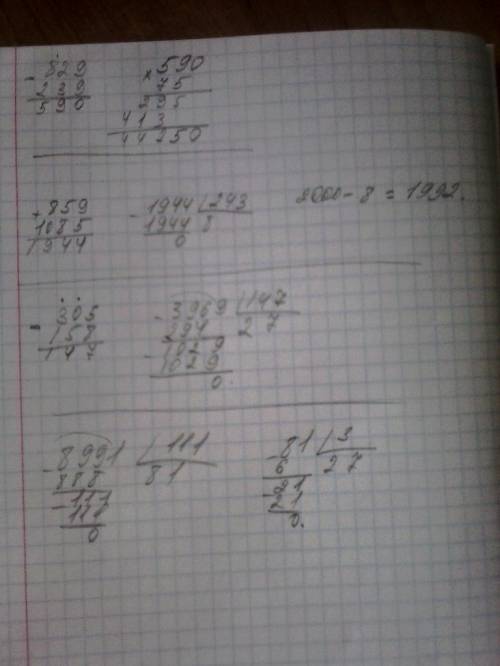 - 829
239
590
× 590
75
295
413
44250
+ 859
1085
1944
- 1944 243
1944 8
0
2000 - 8 = 1992.
- 305
158
147
- 3969 147
294 27
- 1029
1029
0.
- 8991 111
888 81
- 111
111
0
- 81 3
6 27
- 21
21
0.